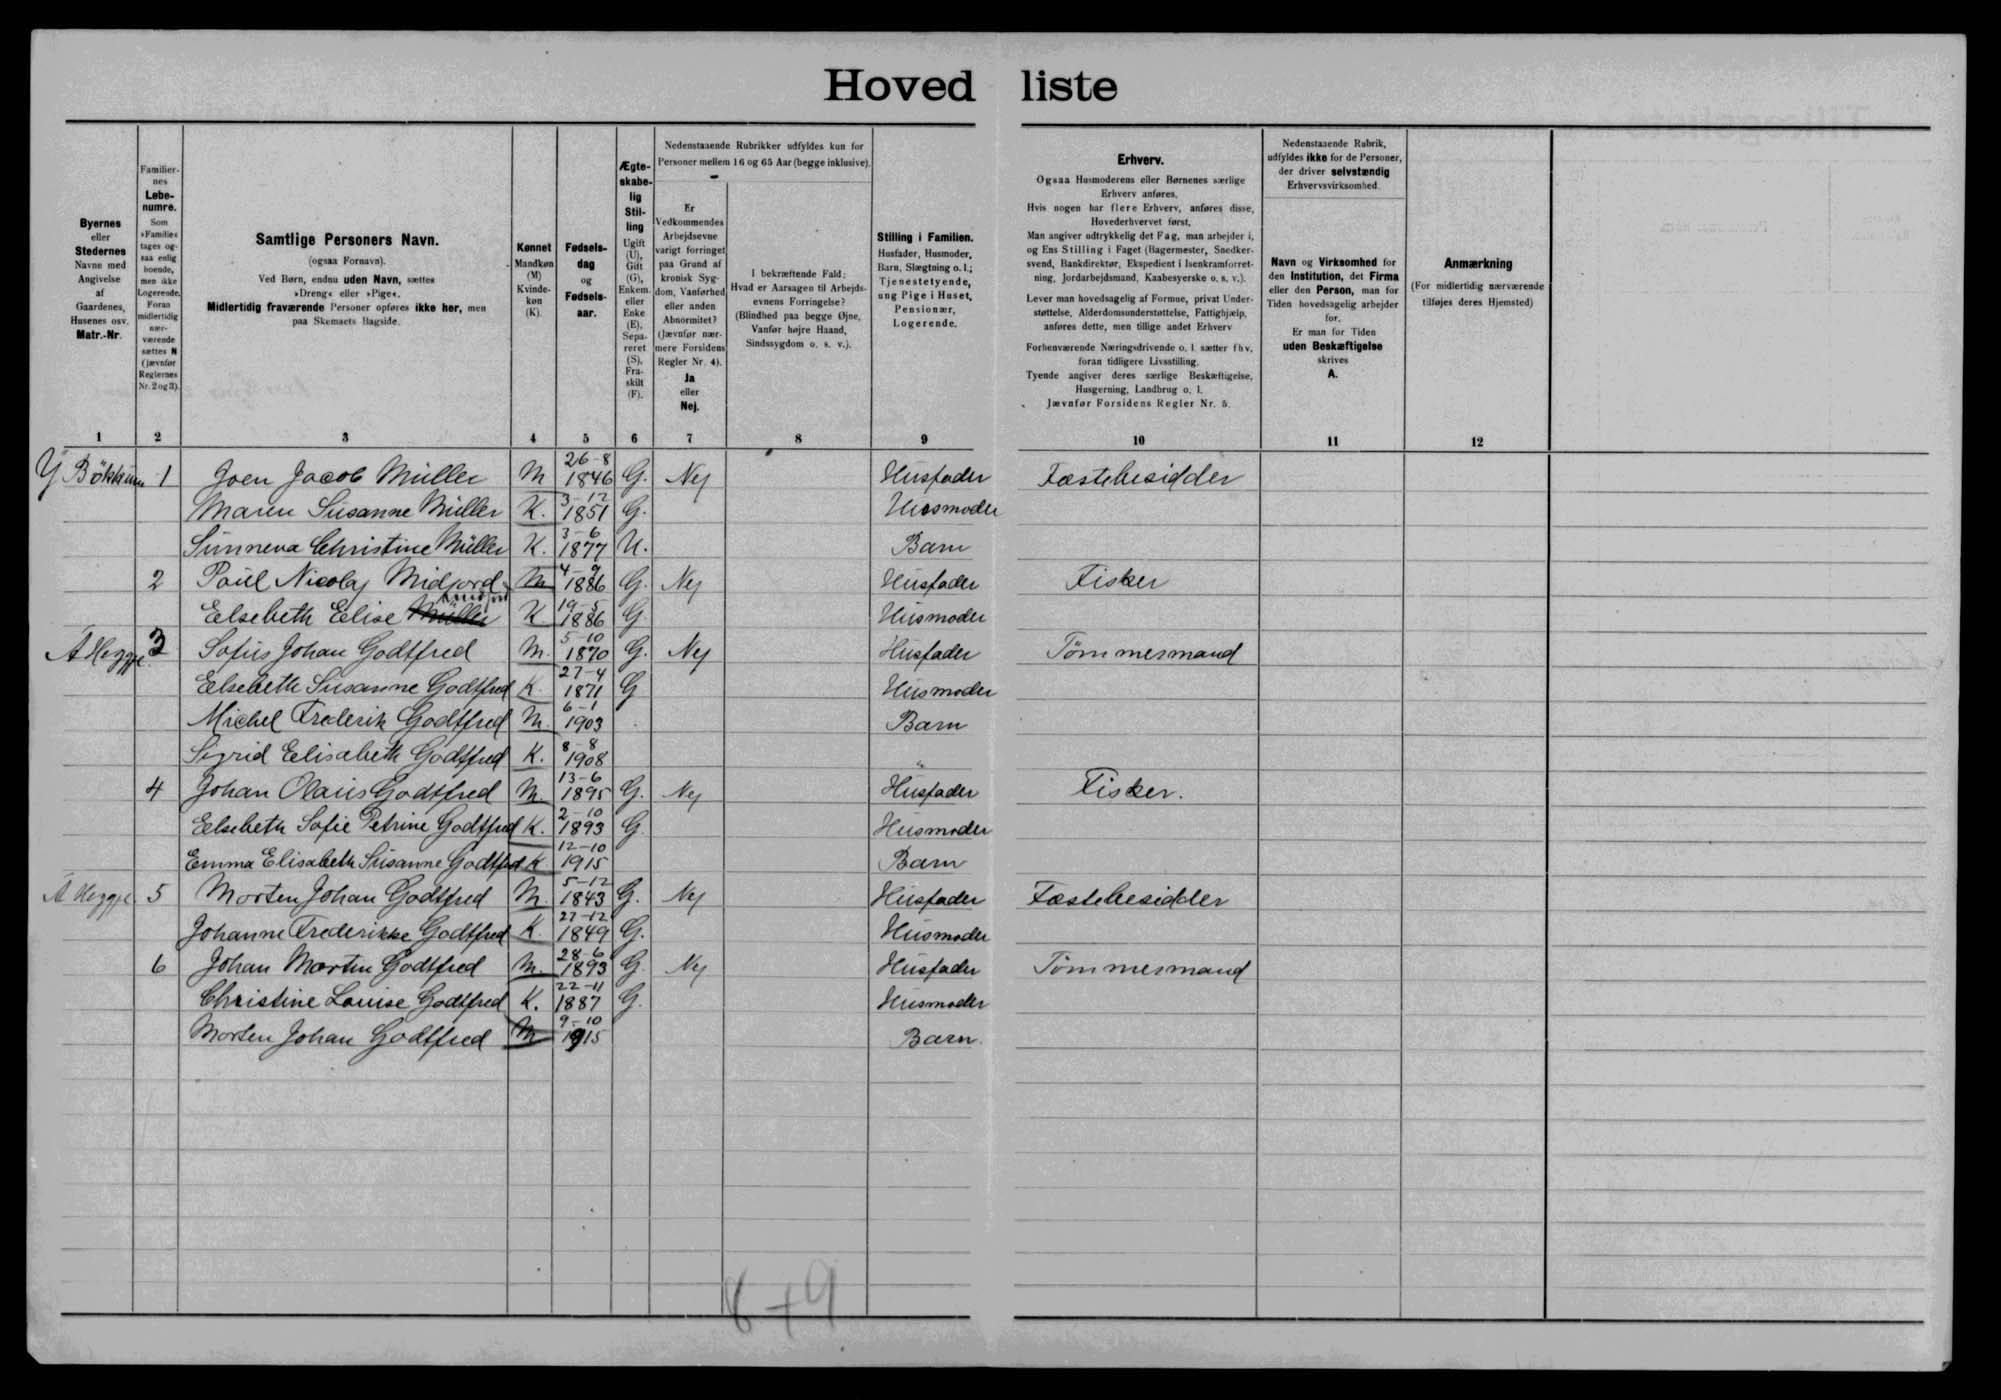 Hovedliste
Byernes
eller
Stedernes
Navne med
Angivelse
af
Gaardenes,
Husenes osv.
Matr.-Nr.
Familier-
nes
Løbe-
numre.
Som
»Familie«
tages og-
saa enlig
boende,
men ikke
Logerende.
Foran
midlertidig
nær-
værende
sættes N
(Jævnfør
Reglernes
Nr. 2 og 3).
Samtlige Personers Navn.
(ogsaa Fornavn).
Ved Børn, endnu uden Navn, sættes
»Dreng« eller »Pige«.
Midlertidig fraværende Personer opføres ikke her, men
paa Skemaets Bagside.
Kønnet
Mandkøn
(M)
Kvinde-
køn
(K).
Fødsels-
dag
og
Fødsels-
aar.
Ægte-
skabe-
lig
Stil-
ling
Ugift
(U),
Gift
(G),
Enkem.
eller
Enke
(E),
Sepa-
reret
(S),
Fra-
skilt
(F).
Nedenstaaende Rubrikker udfyldes kun for
Personer mellem 16 og 65 Aar (begge inklusive).
Er
Vedkommendes
Arbejdsevne
varigt forringet
paa Grund af
kronisk Syg-
dom, Vanførhed
eller anden
Abnormitet?
(Jævnfør nær-
mere Forsidens
Regler Nr. 4).
Ja
eller
Nej.
I bekræftende Fald:
Hvad er Aarsagen til Arbejds-
evnens Forringelse?
(Blindhed paa begge Øjne,
Vanfør højre Haand,
Sindssygdom o. s. v.).
Stilling i Familien.
Husfader, Husmoder,
Barn, Slægtning o. l.;
Tjenestetyende,
ung Pige i Huset,
Pensionær,
Logerende.
Erhverv.
Ogsaa Husmoderens eller Børnenes særlige
Erhverv anføres.
Hvis nogen har flere Erhverv, anføres disse,
Hovederhvervet først.
Man angiver udtrykkelig det Fag, man arbejder i,
og Ens Stilling i Faget (Bagermester, Snedker-
svend, Bankdirektør, Ekspedient i Isenkramforret-
ning, Jordarbejdsmand, Kaabesyerske o. s. v.).
Lever man hovedsagelig af Formue, privat Under-
støttelse, Alderdomsunderstøttelse, Fattighjælp,
anføres dette, men tillige andet Erhverv
Forhenværende Næringsdrivende o. l. sætter fhv.
foran tidligere Livsstilling.
Tyende angiver deres særlige Beskæftigelse,
Husgerning, Landbrug o. l.
Jævnfør Forsidens Regler Nr. 5.
Nedenstaaende Rubrik,
udfyldes ikke for de Personer,
der driver selvstændig
Erhvervsvirksomhed.
Navn og Virksomhed for
den Institution, det Firma
eller den Person, man for
Tiden hovedsagelig arbejder
for.
Er man for Tiden
uden Beskæftigelse
skrives
A.
Anmærkning
(For midlertidig nærværende
tilføjes deres Hjemsted)
1 2 3 4 5 6 7 8 9 10 11 12
Y Bökkum 1 Joen Jacob Müller M 26-8 1846 G. Nej Husfader Fæstebesidder
Maren Susanne Müller K. 3-12 1851 G. Husmoder
Sunneva Christine Müller K. 3-6 1877 U. Barn
2 Poul Nicolaj Midjord M 4-9 1886 G. Nej Husfader Fisker
Elsebeth Elise Müller Midjord K 19-5 1886 G. Husmoder
A Heggje 3 Sofus Johan Godtfred M. 5-10 1870 G. Nej Husfader Tømmermand
Elsebeth Susanne Godtfred K. 27-4 1871 G Husmoder
Michel Frederik Godtfred M. 6-1 1903 Barn
Sigrid Elisabeth Godtfred K. 8-8 1908 "
4 Johan Olaus Godtfred M. 13-6 1895 G. Nej Husfader Fisker.
Elsebeth Sofie Petrine Godtfred K. 2-10 1893 G. Husmoder
Emma Elisabeth Susanne Godtfred K 12-10 1915 Barn
A Heggje 5 Morten Johan Godtfred M. 5-12 1843 G. Nej Husfader Fæstebesidder
Johanne Frederikke Godtfred K. 27-12 1849 G. Husmoder
6 Johan Martin Godtfred M. 28-6 1893 G. Nej Husfader Tømmermand
Christine Louise Godtfred K. 22-11 1887 G. Husmoder
Morten Johan Godtfred M 9-10 1915 Barn.
8+9